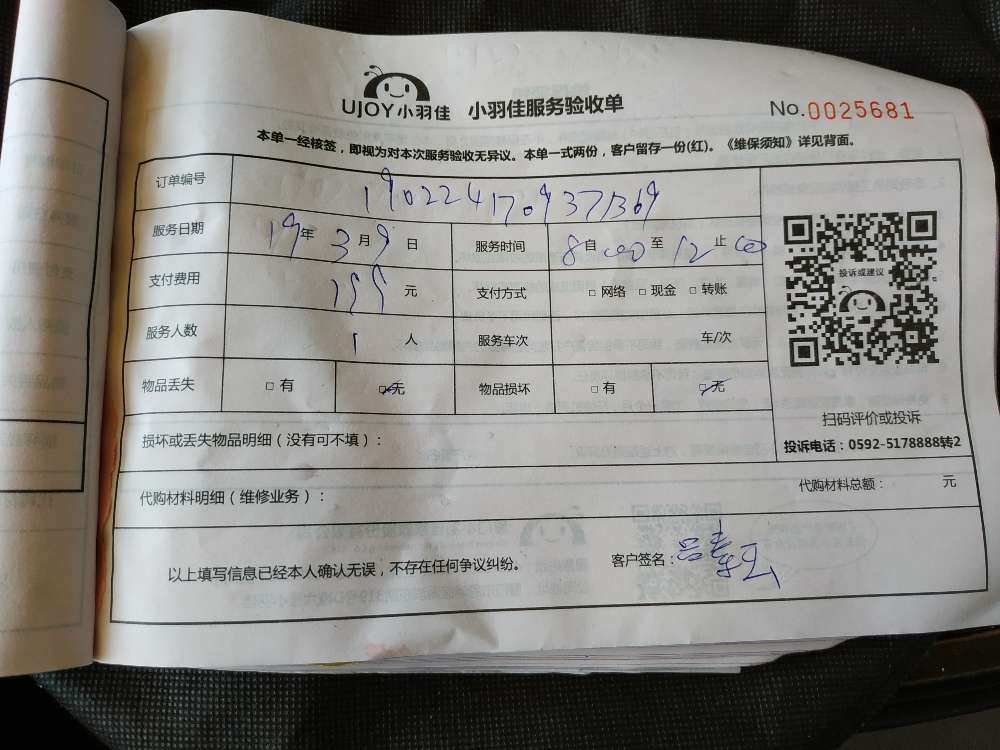 UJOY小羽佳 小羽佳服务验收单 No.0025681
本单一经核签，即视为对本次服务验收无异议。本单一式两份，客户留存一份(红)。《维保须知》详见背面。
订单编号 1902241709371369
服务日期 19年3月9日 服务时间 8自00至12止00
支付费用 155元 支付方式 □网络 □现金 □转账
服务人数 1人 服务车次 车/次
物品丢失 □有 □无 物品损坏 □有 □无
投诉或建议
扫码评价或投诉
投诉电话：0592-5178888转2
损坏或丢失物品明细（没有可不填）：
代购材料明细（维修业务）： 代购材料总额： 元
以上填写信息已经本人确认无误，不存在任何争议纠纷。 客户签名：